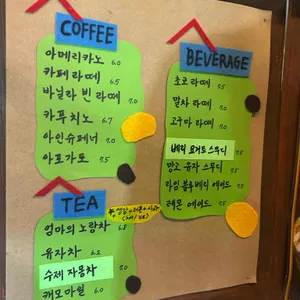 COFFEE
아메리카노 6.0
카페라떼 6.5
바닐라 빈 라떼 7.0
카푸치노 6.7
아인슈페너 7.0
아포가토 7.5
TEA
엄마의 노랑차 6.8
유자차 6.2
수제 자몽차 7.0
캐모마일 6.0
BEVERAGE
초코 라떼 7.5
말차 라떼 7.5
고구마 라떼 7.5
베리 요거트 스무디
망고 유자 스무디 7.5
라임 블루베리 에이드 7.5
레몬 에이드 7.5